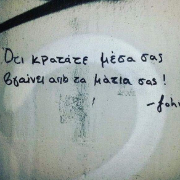 Ότι κρατάτε μέσα σας
βγαίνει από τα μάτια σας!